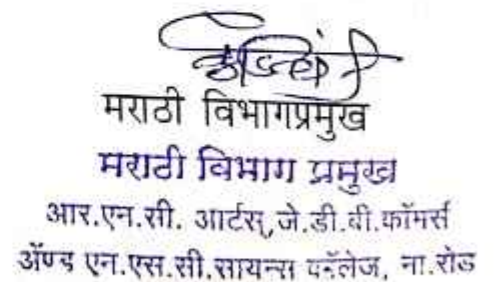 मराठी विभागप्रमुख
मराठी विभाग प्रमुख
आर.एन.सी. आर्टस्,जे.डी.बी.कॉमर्स
ॲण्ड एन.एस.सी.सायन्स कॉलेज, ना.रोड